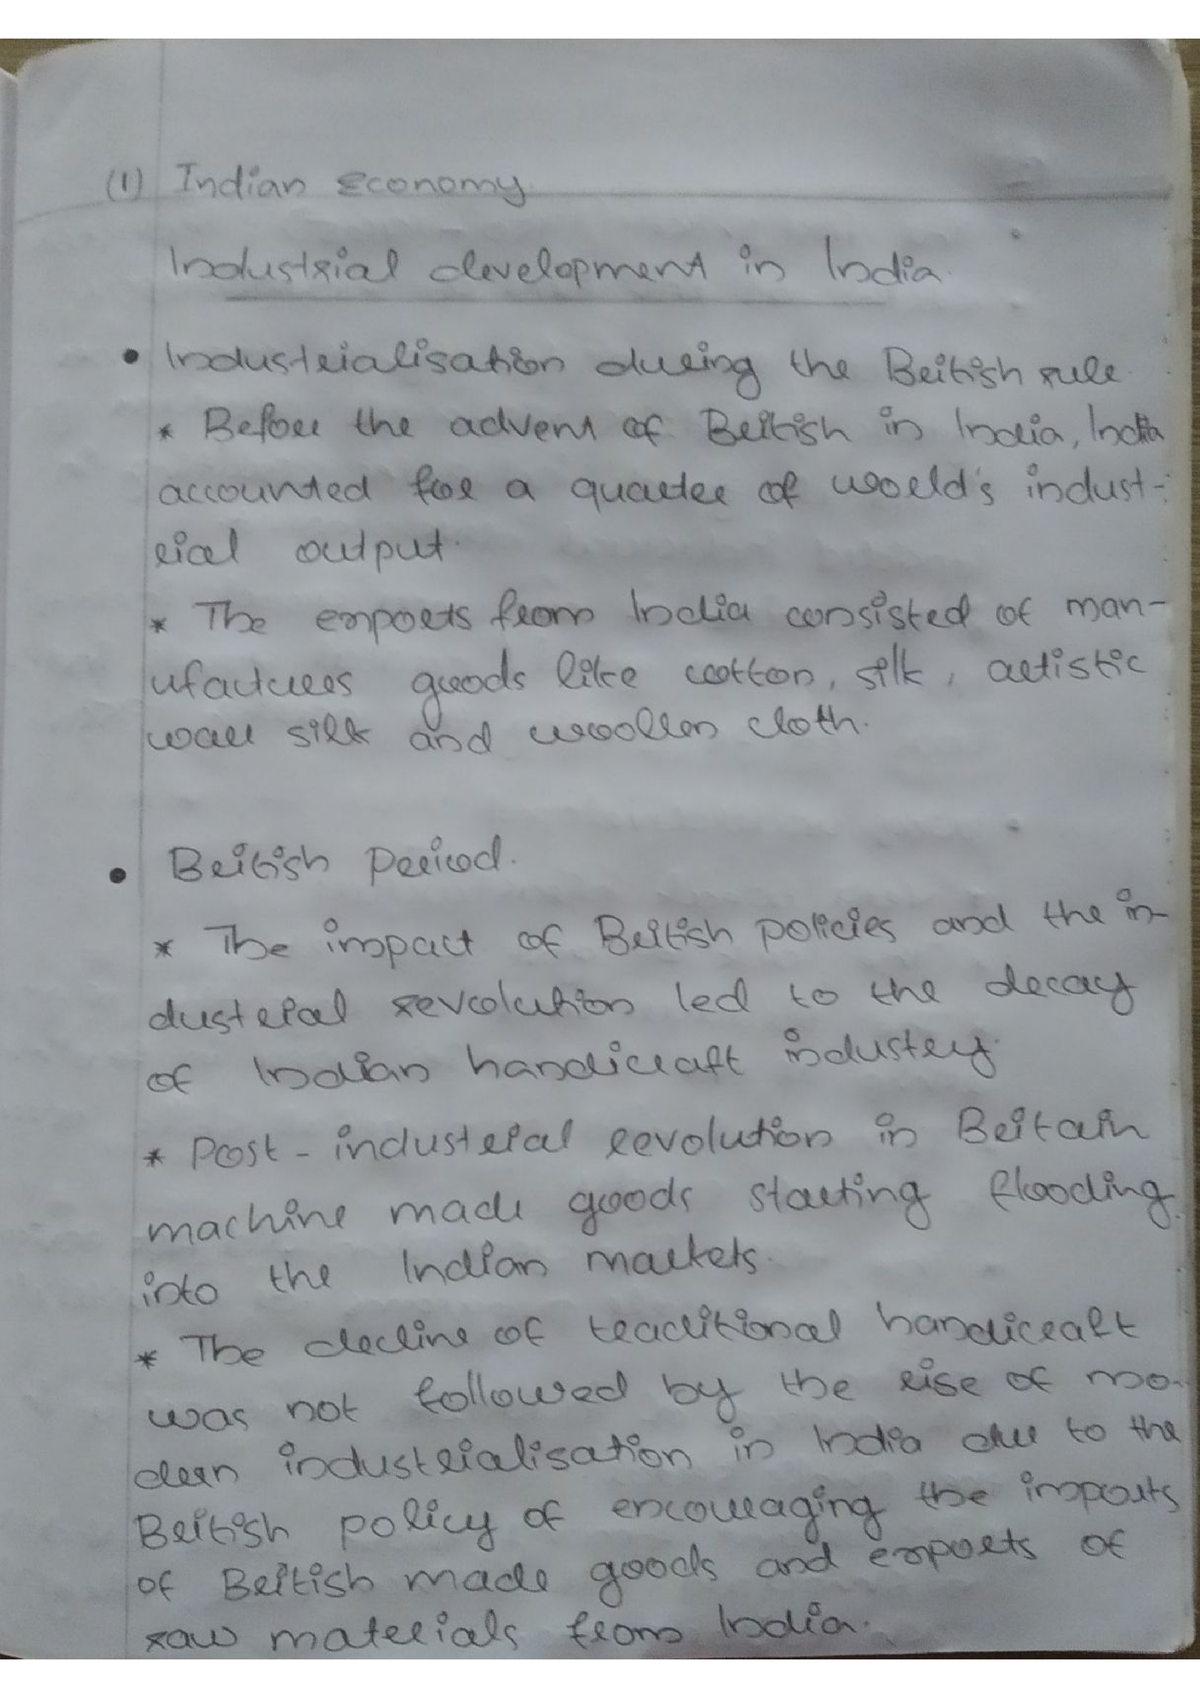 (1) Indian Economy.
Industrial development in India.
• Industrialisation during the British rule.
* Before the advent of British in India, India
accounted for a quarter of world's indust-
rial output.
* The exports from India consisted of man-
ufactures goods like cotton, silk, artistic
ware silk and woollen cloth.
• British Period.
* The impact of British policies and the in-
dustrial revolution led to the decay
of Indian handicraft industry.
* Post-industrial revolution in Britain
machine made goods starting flooding
into the Indian markets.
* The decline of traditional handicraft
was not followed by the rise of mo-
dern industrialisation in India due to the
British policy of encouraging the imports
of British made goods and exports of
raw materials from India.